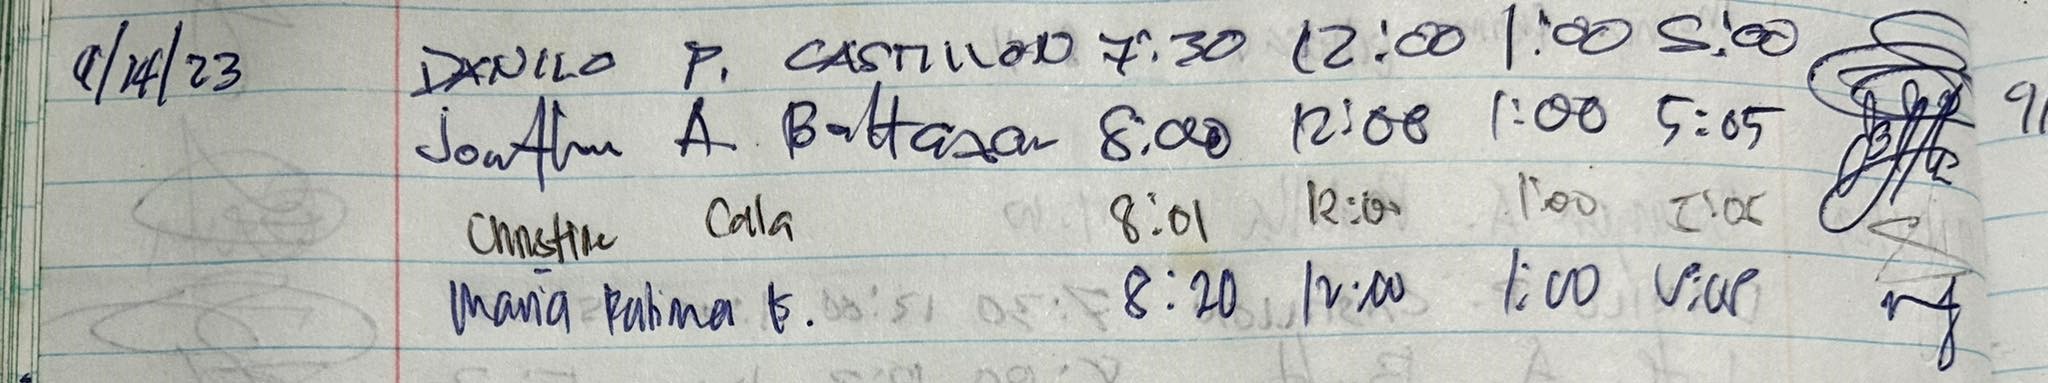 9/14/23 DANILO P. CASTILLON 7:30 12:00 1:00 5:00
Jonathan A. Baltazar 8:00 12:00 1:00 5:05
Christine Calla 8:01 12:00 1:00
Maria Fatima E. 8:20 12:00 1:00